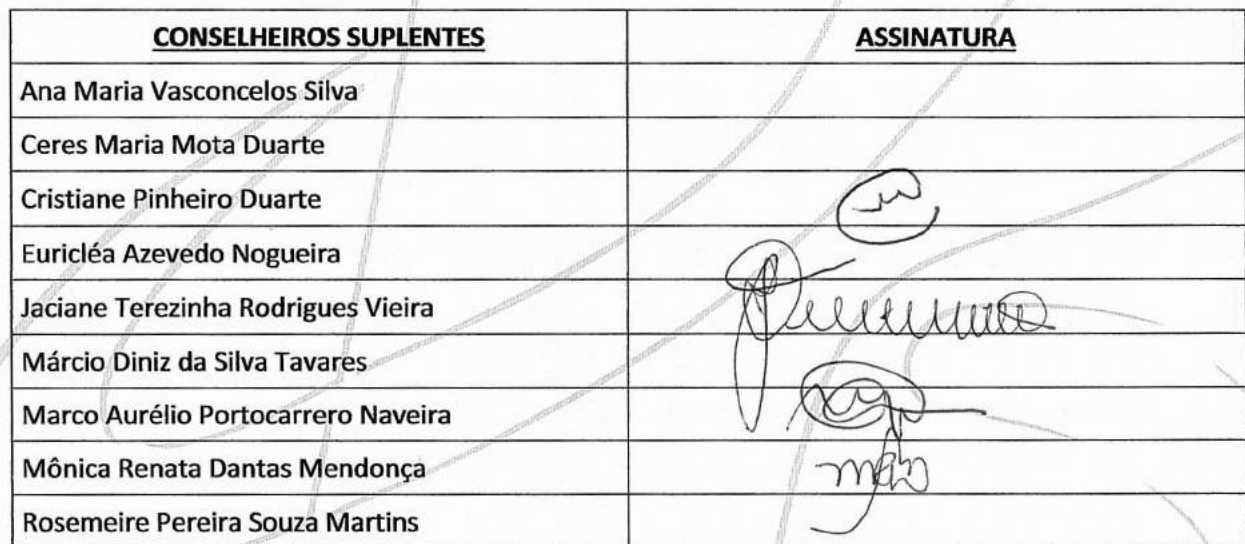 CONSELHEIROS SUPLENTES ASSINATURA
Ana Maria Vasconcelos Silva
Ceres Maria Mota Duarte
Cristiane Pinheiro Duarte
Euricléa Azevedo Nogueira
Jaciane Terezinha Rodrigues Vieira
Márcio Diniz da Silva Tavares
Marco Aurélio Portocarrero Naveira
Mônica Renata Dantas Mendonça
Rosemeire Pereira Souza Martins